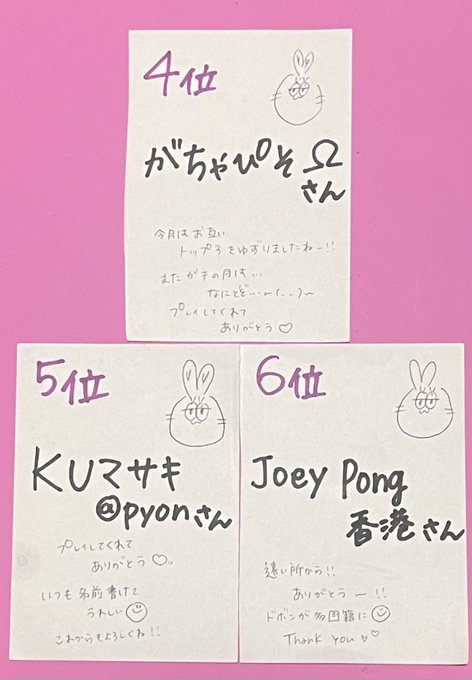 4位
がちゃぴそΩ
さん
今月はお互い
トップ3をゆずりましたねー!!
またガチの月は…
なにとぞ…
プレイしてくれて
ありがとう♡
5位
KUマサキ
@pyonさん
プレイしてくれて
ありがとう♡
いつも名前書けて
うれしい
これからもよろしくね!!
6位
Joey Pong
香港さん
遠い所から!!
ありがとうー!!
ドボンが多国籍に
Thank you♡